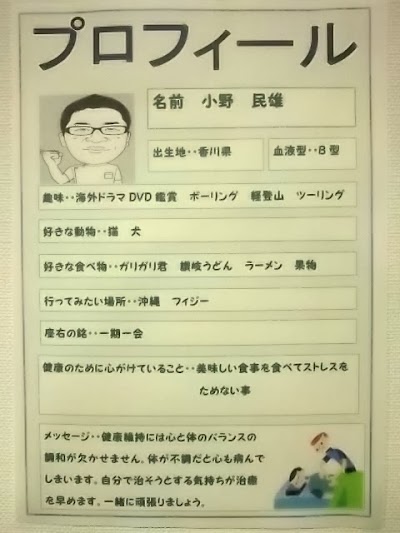 プロフィール
名前　小野　民雄
出生地‥香川県
血液型‥B型
趣味‥海外ドラマDVD鑑賞　ボーリング　軽登山　ツーリング
好きな動物‥猫　犬
好きな食べ物‥ガリガリ君　讃岐うどん　ラーメン　果物
行ってみたい場所‥沖縄　フィジー
座右の銘‥一期一会
健康のために心がけていること‥美味しい食事を食べてストレスを
ためない事
メッセージ‥健康維持には心と体のバランスの
調和が欠かせません。体が不調だと心も病んで
しまいます。自分で治そうとする気持ちが治療
を早めます。一緒に頑張りましょう。